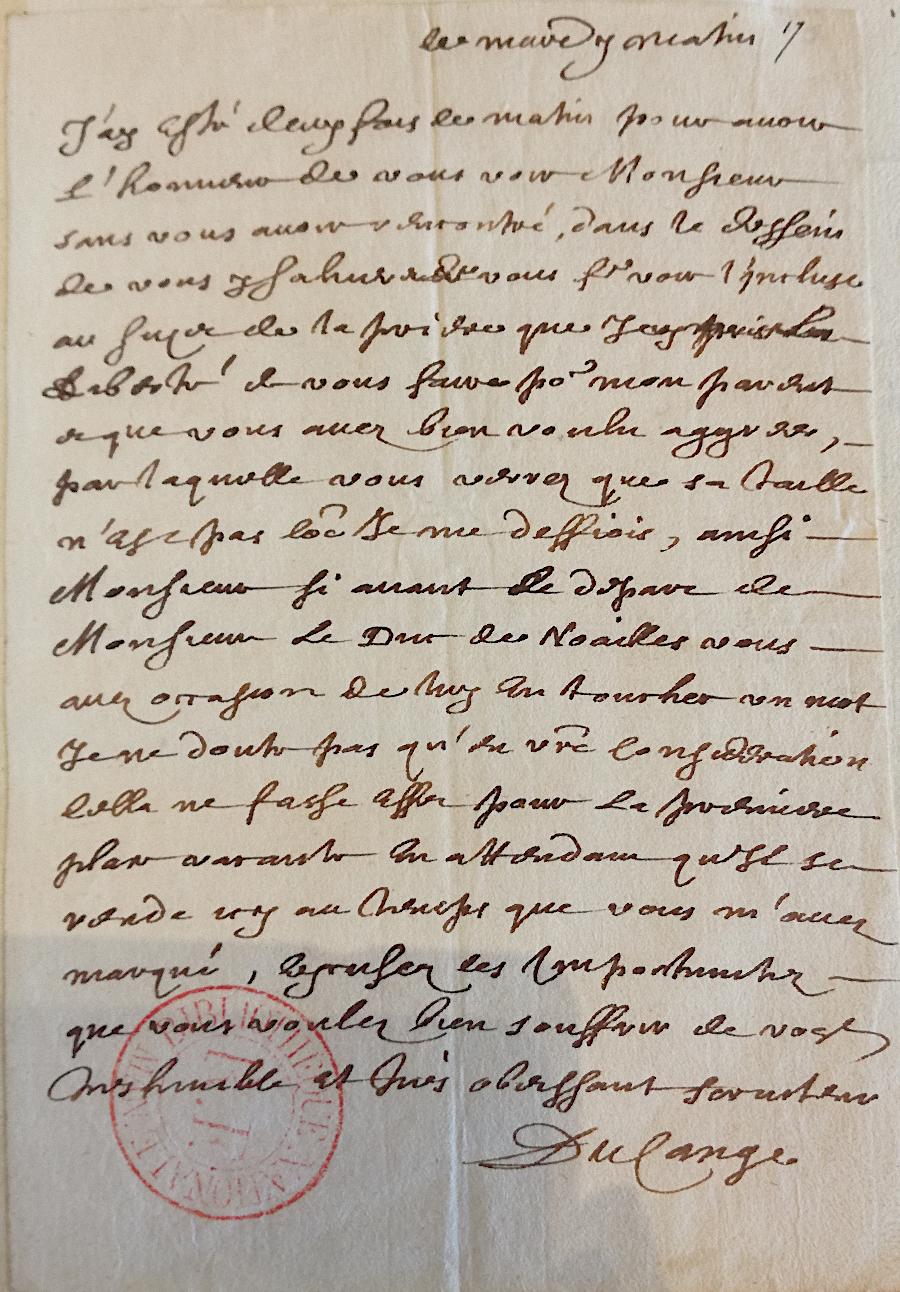 ce mardy matin 17
J'ay esté deux fois ce matin pour avoir
l'honneur de vous voir Monsieur
sans vous avoir rencontré, dans le dessein
de vous y saluer et vous fre voir l'ÿncluse
au sujet de la priere que J'ay pris la
Liberté de vous faire por mon parent
et que vous avez bien voulu aggreer,
par laquelle vous verrez que sa taille
n'est pas Je me deffiois, ainsi
Monsieur si avant le depart de
Monsieur Le Duc de Noailles vous
avez occasion de luy en toucher un mot
Je ne doute pas qu'en vre consideration
cella ne fasse effet pour la premiere
place vacante en attendant qu'il se
rende icy au temps que vous m'avez
marqué, excusez les Importunitez
que vous voulez bien souffrir de vost
tres humble et très obeissant serviteur
DuCange
BIBLIOTHEQUE NATIONALE